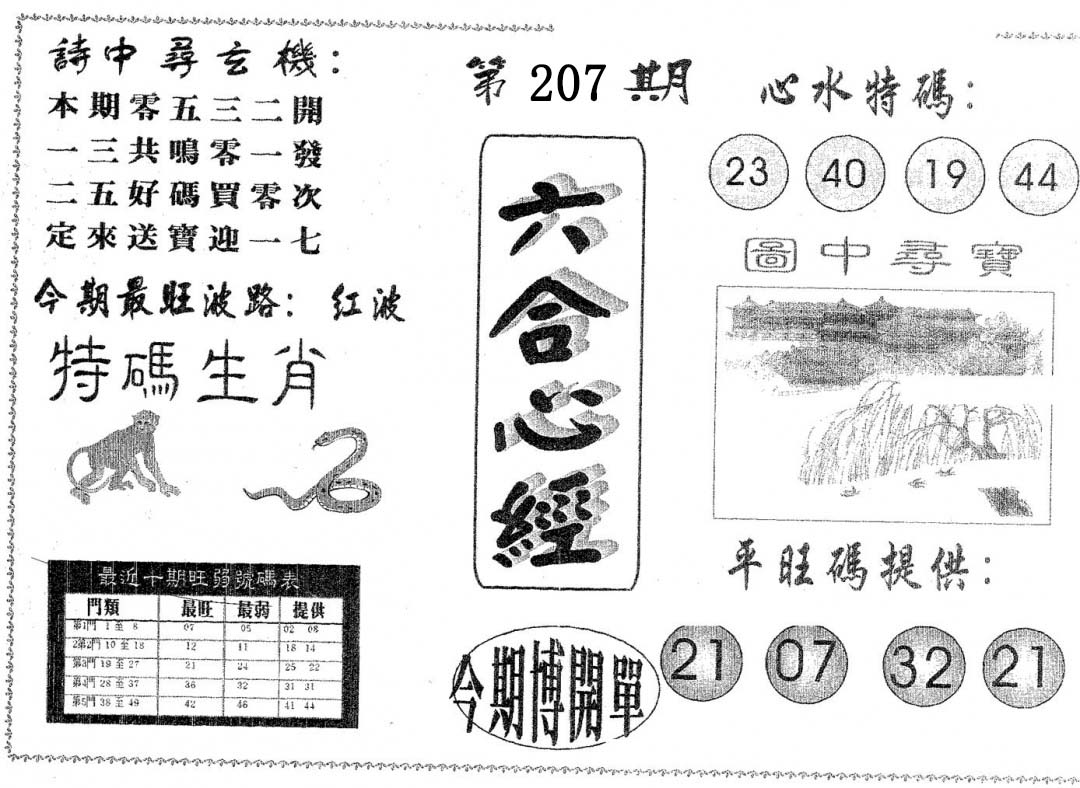 詩中尋玄機：
本期零五三二開
一三共鳴零一發
二五好碼買零次
定來送寶迎一七
今期最旺波路：紅波
特碼生肖
最近十期旺弱號碼表
門類 最旺 最弱 提供
第1門 1 至 8 07 05 02 08
2第2門 10 至 18 12 11 18 14
第3門 19 至 27 21 24 25 22
第4門 28 至 37 36 32 31 31
第5門 38 至 49 42 46 41 44
第 207 期
六合心經
今期博開單
心水特碼：
23 40 19 44
圖中尋寶
平旺碼提供：
21 07 32 21